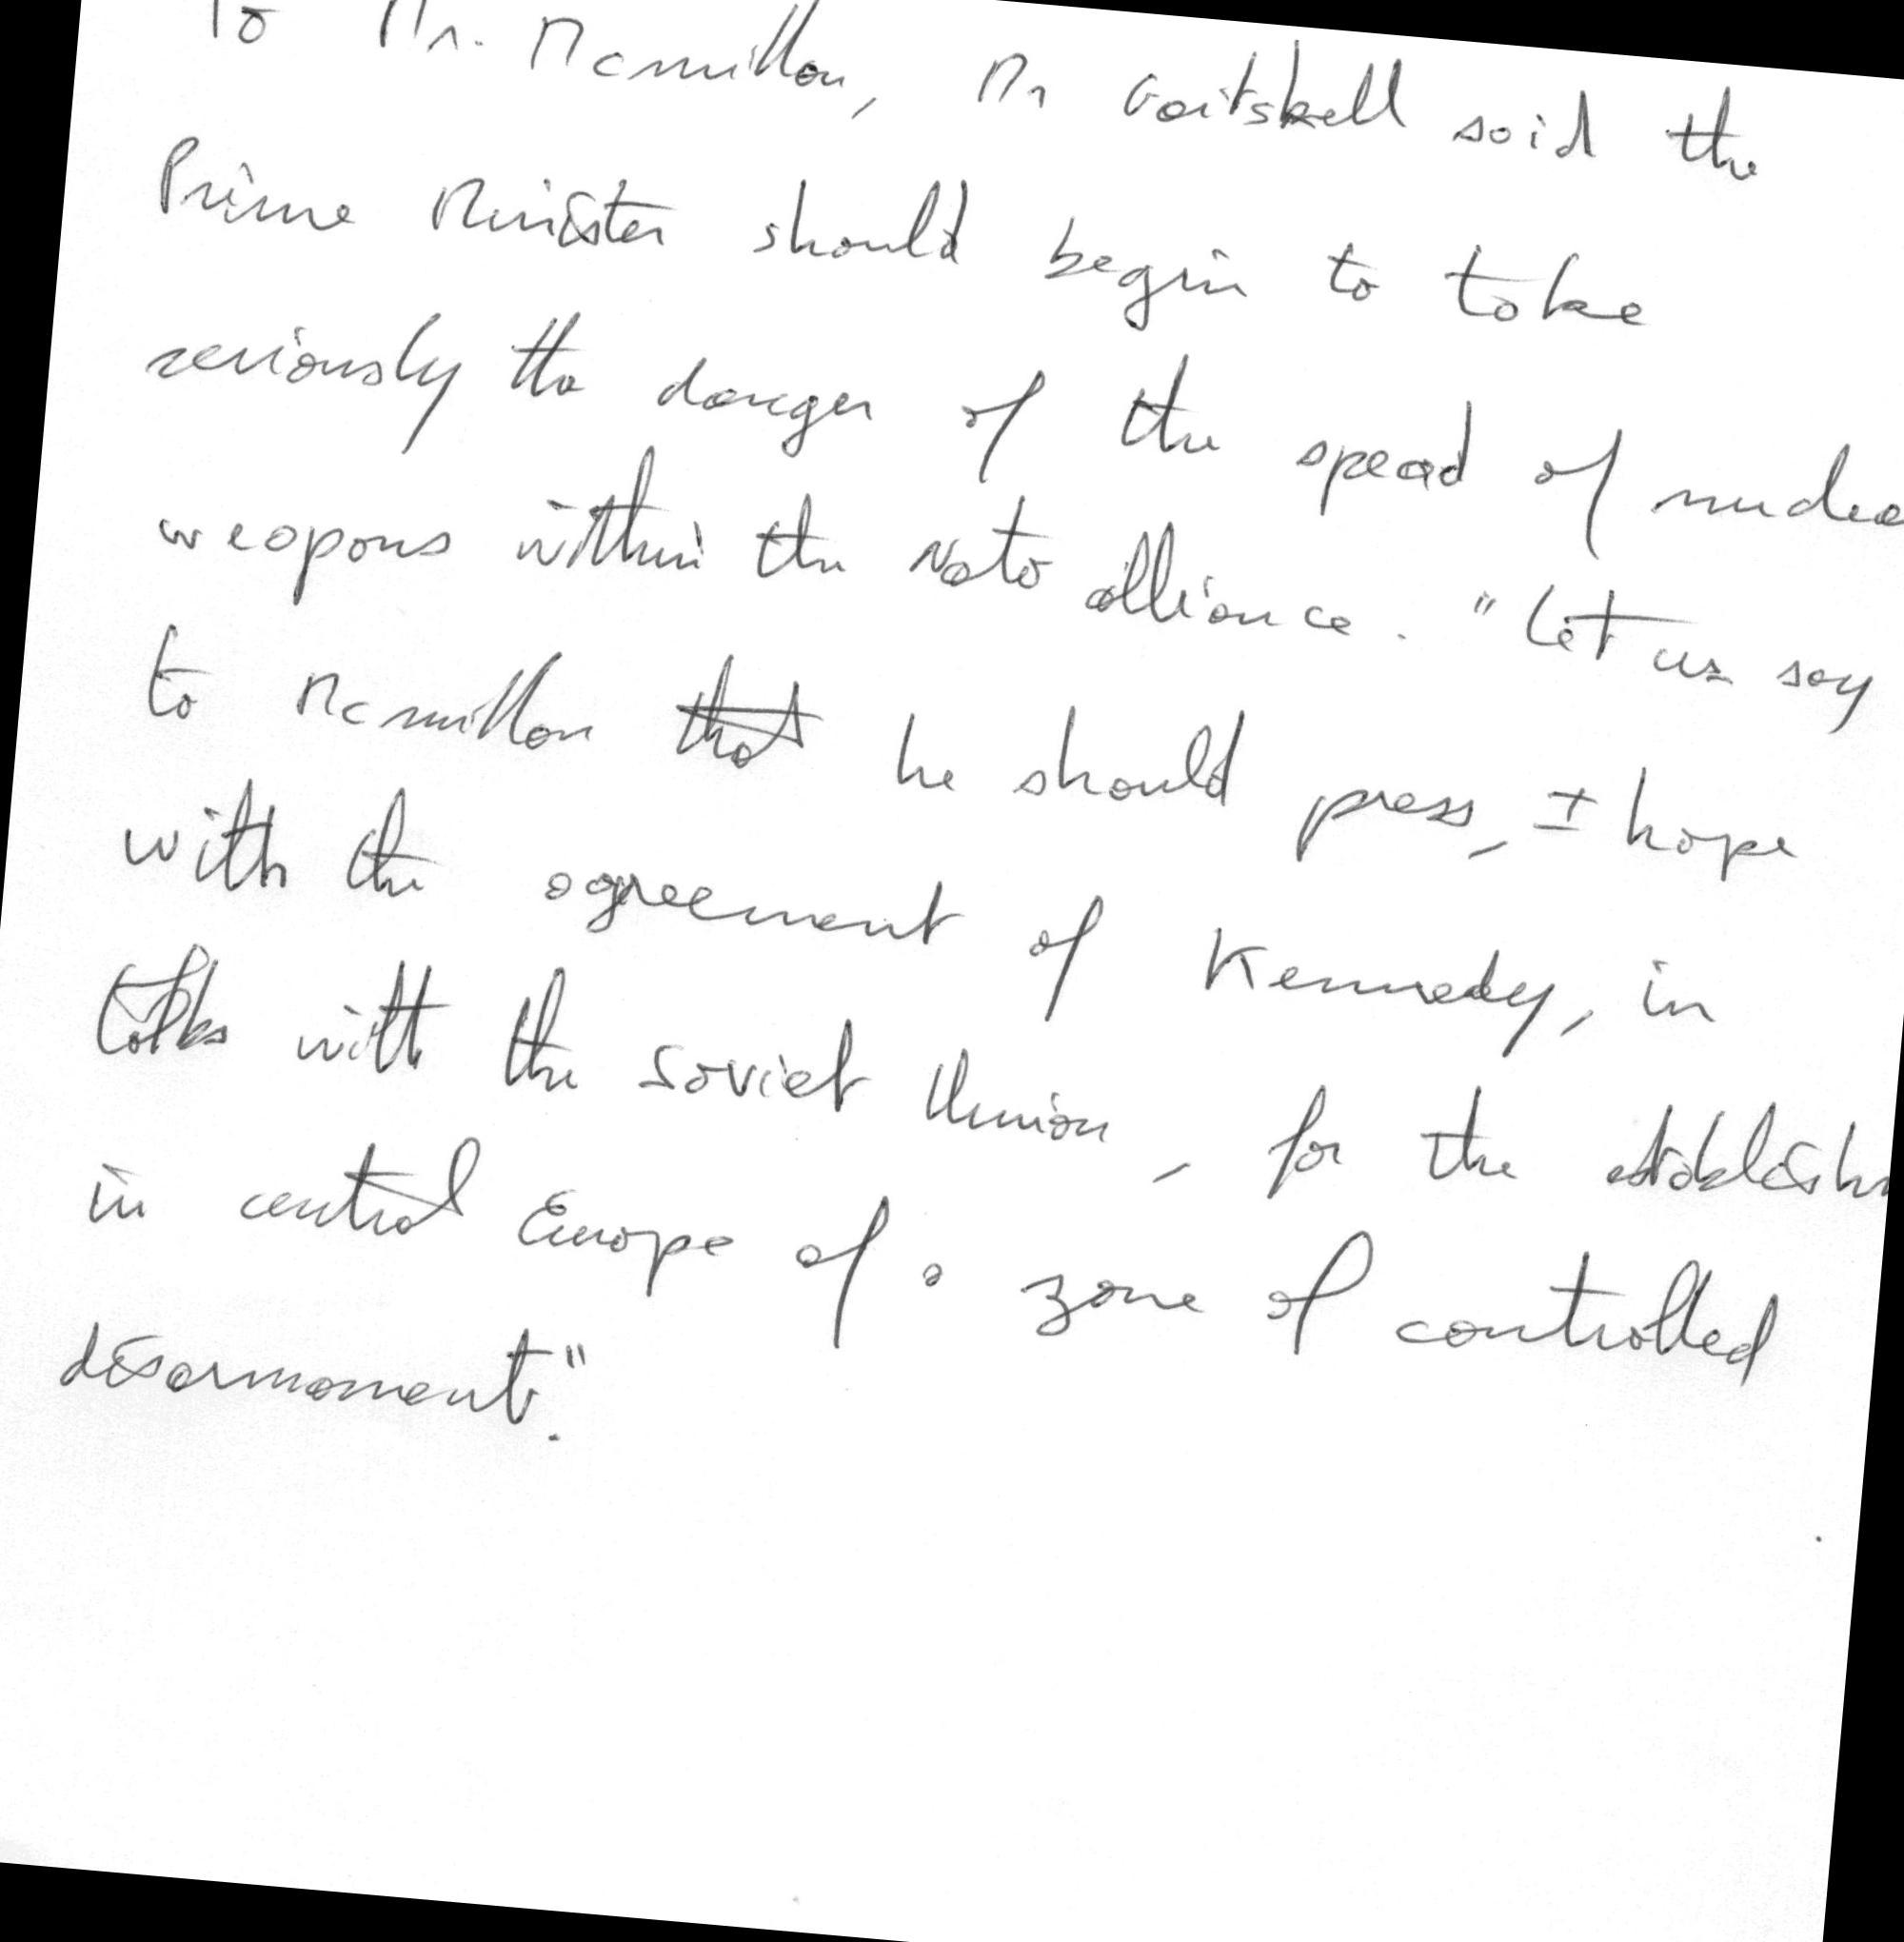 To Mr. Mcmillan, Mr Gaitskell said the
Prime Minister should begin to take
seriously the danger of the spead of nuclea
weapons within the Nato alliance. "Let us say
to Mcmillan that he should press, I hope
with the agreement of Kennedy, in
talks with the Soviet Union, for the establish
in central Europe of a zone of controlled
disarmament."